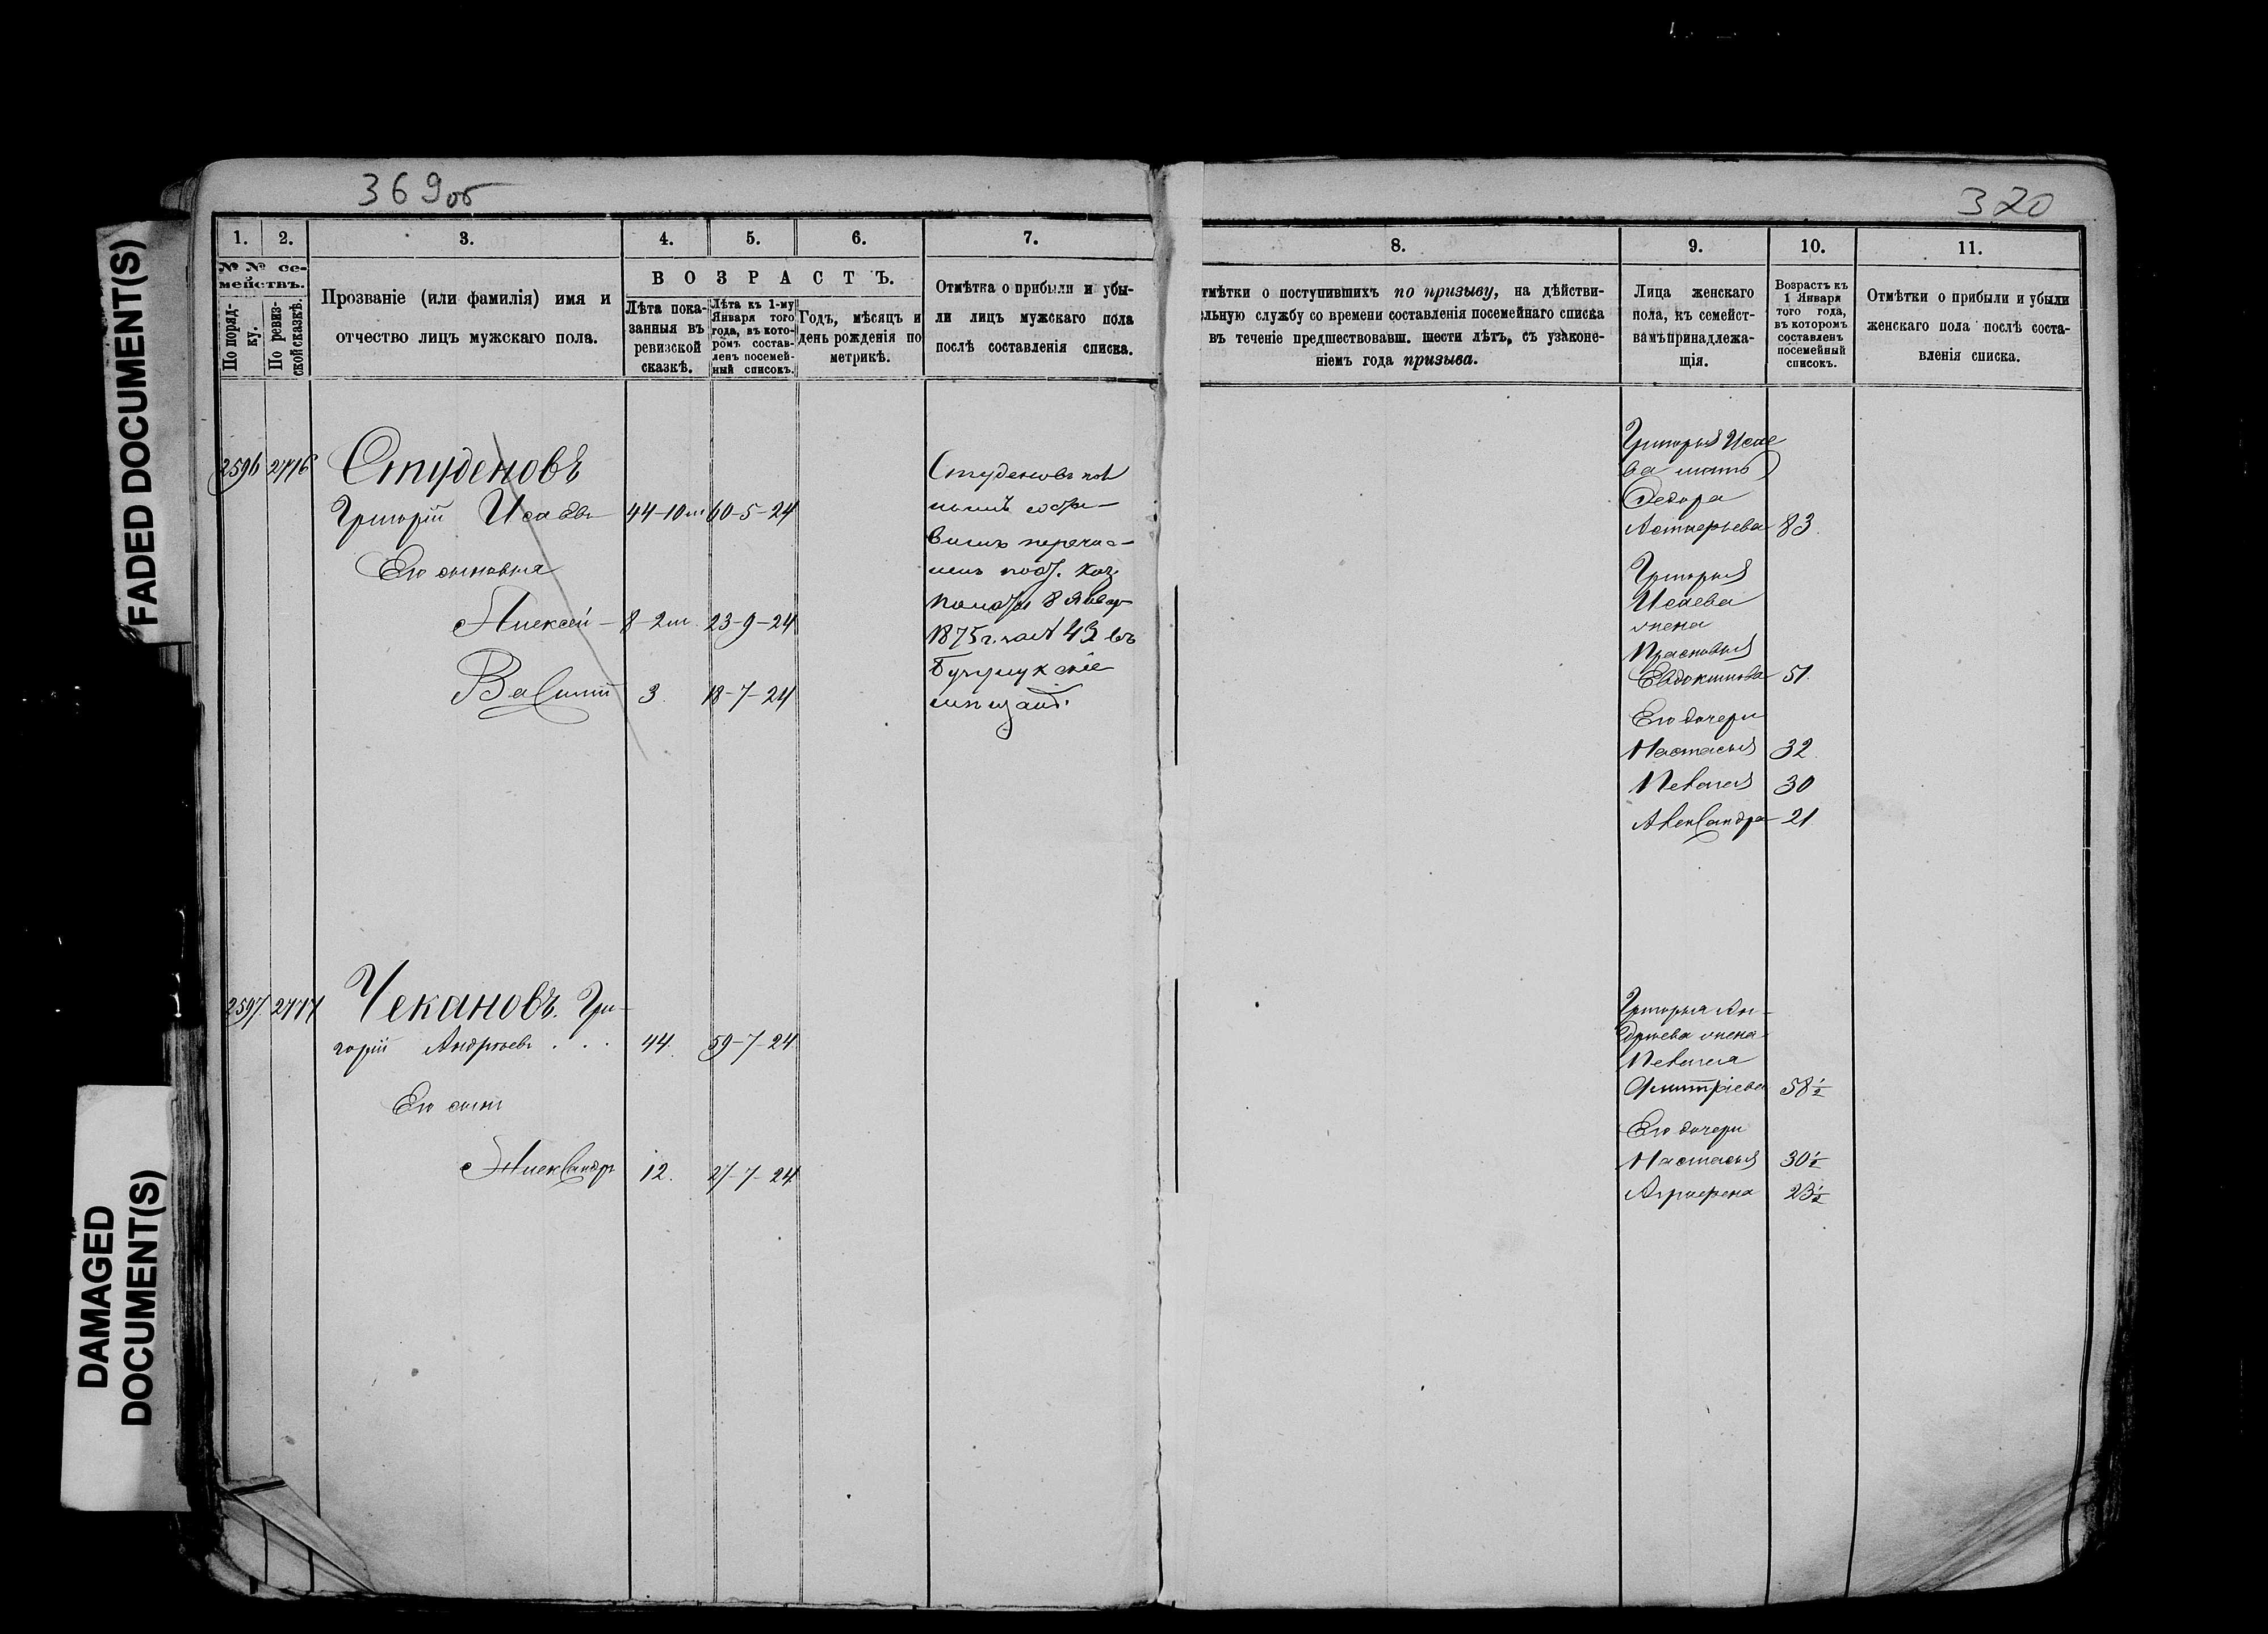 FADED DOCUMENT(S)
DAMAGED
DOCUMENT(S)
369об
1.
2.
3.
4.
5.
6.
7.
№ № се-
мействъ.
По поряд-
ку.
По ревиз-
ской сказкѣ.
Прозваніе (или фамилія) имя и
отчество лицъ мужскаго пола.
ВОЗРАСТЪ.
Лѣта пока-
занныя въ
ревизской
сказкѣ.
Лѣта къ 1-му
Января того
года, въ кото-
ромъ состав-
ленъ посемей-
ный списокъ.
Годъ, мѣсяцъ и
день рожденія по
метрикѣ.
Отмѣтка о прибыли и убы-
ли лицъ мужскаго пола
послѣ составленія списка.
2596
2716
Студеновъ
Григорій Исаевъ
44-10м
60-5-24
Его сыновья
Алексѣй
8-2м
23-9-24
Василій
3
18-7-24
Студеновъ
перечис-
ленъ
8 Январ
1875 г. 43 въ
Бузулукскіе
мѣщан.
2597
2717
Чекановъ. Гри-
горій Андреевъ . . .
44
59-7-24
Его сынъ
Александръ
12.
27-7-24
320
8.
9.
10.
11.
тмѣтки о поступившихъ по призыву, на дѣйстви-
ельную службу со времени составленія посемейнаго списка
въ теченіе предшествовавш. шести лѣтъ, съ узаконе-
ніемъ года призыва.
Лица женскаго
пола, къ семейст-
вамъ принадлежа-
щія.
Возрастъ къ
1 Января
того года,
въ которомъ
составленъ
посемейный
списокъ.
Отмѣтки о прибыли и убыли
женскаго пола послѣ соста-
вленія списка.
Григорья Исае
ва мать
Федора
Астафьева 83
Григорья
Исаева
жена
Прасковья
Евдокимова 51
Его дочери
Настасья 32
Пелагея 30
Александра 21
Григорья Ан-
дреева жена
Пелагея
Дмитріева 58½
Его дочери
Настасья 30½
Аграфена 23½